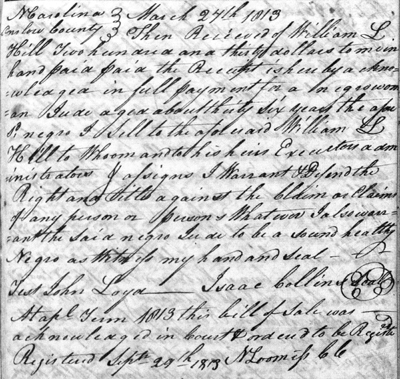 N Carolina } March 24th 1813
Onslow County } Then Received of William L
Hill Two hundred and thirty dollars to me in
hand paid paid the Receipt is herby acknow
wledged in full payment for a negro wom
=an Jude aged about thirty six years the afore
sd negro I Sell to the aforesaid William L
Hill to Whom and to his heirs Executors adm
inistrators & assigns I Warrant & Defend the
Right and title against the Claim or Claims
of any person or Persons Whatever I also warr=
=ant the Said negro Jude to be a Sound healthy
Negro as Witness my hand and seal —
Test John Loyd — Isaac Collins Seal
At apl. Term 1813 this bill of Sale was —
acknowledged in Court & ordered to be Registerd
Registered Sept 29th 1813 N Loomiss CC